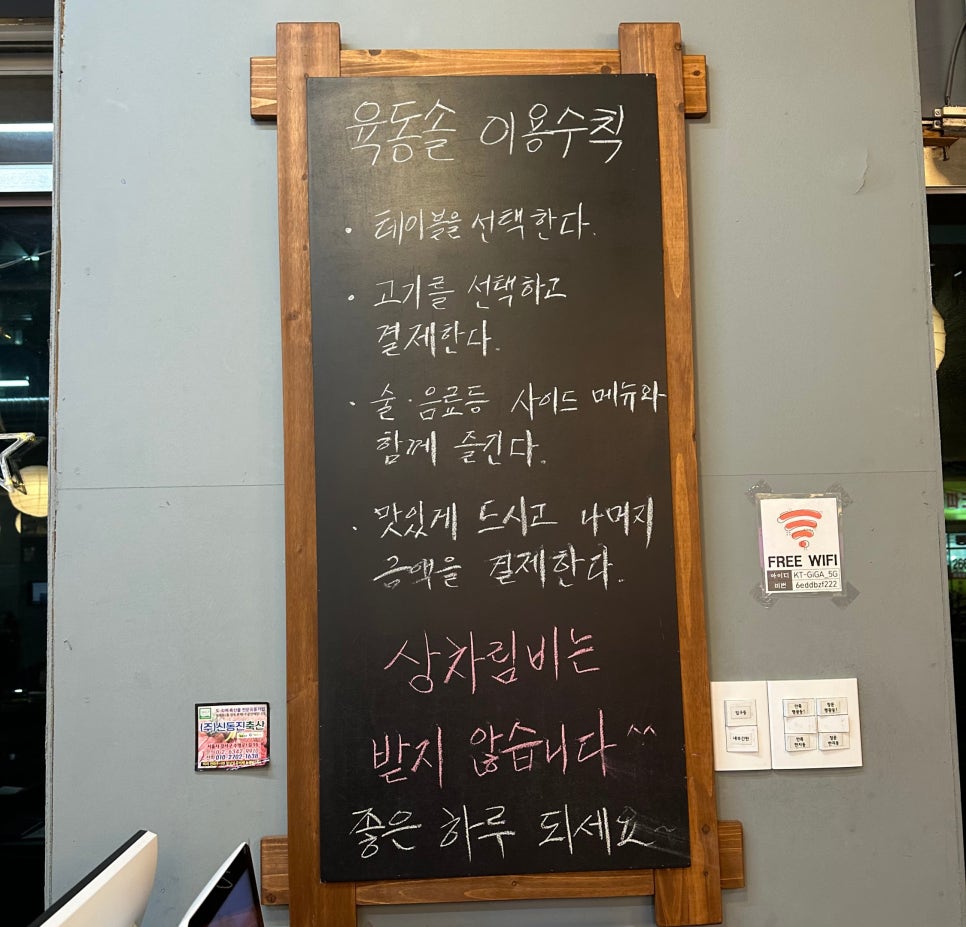 육동솔 이용수칙
· 테이블을 선택한다.
· 고기를 선택하고
결제한다.
· 술·음료등 사이드 메뉴와
함께 즐긴다.
· 맛있게 드시고 나머지
금액을 결제한다.
상차림비는
받지 않습니다^^
좋은 하루 되세요~
FREE WIFI
아이디 KT-GiGA_5G
비번 6eddbzf222
(주)신동진축산
010-2702-1638
입구등
내부간판